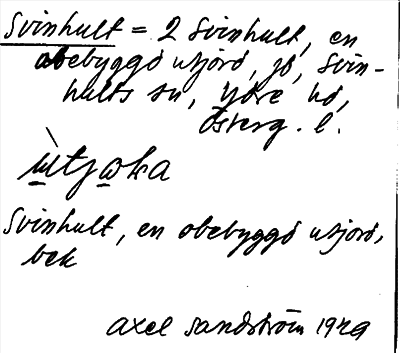 Svinhult = 2 Svinhult, en
obebyggd utjord, jb, Svin-
hults sn, Ydre hd,
Österg. l.
ùtjωka
Svinhult, en obebyggd utjord,
bek
Axel Sandström 1929